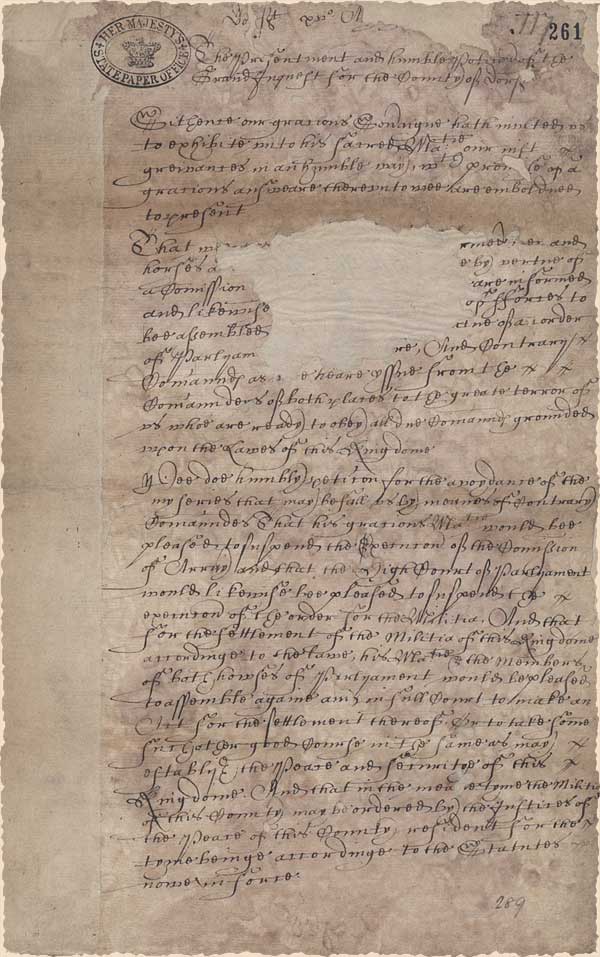 HER MAJESTY'S STATE PAPER OFFICE
261
The Presentment and humble Petition of the
Grand Inquest for the County of Dors
Sithence our gratious Soveraigne hath invited us
to exhibite unto his sacred Matie our just
greivances in an humble way, wth promise of a
gratious answeare thereunto wee are emboldned
to present
That
and
horses a by vertue of
a Comission are informed
and likewise of fforces to
bee assembled order
of Parlyam re, And Contrary
Comaund as heare yssue from the
Comaunders of both places to the greate terror of
us whoe are ready to obey all due Comaund grounded
upon the Lawes of this Kingdome
Wee doe humbly peticon for the avoydance of the
myseries that may befall us by meanes of Contrary
Comaundes That his gratious Matie would bee
pleased to suspend the Execucon of the Comission
of Array, and that the High Court of Parlyament
would likewise bee pleased to suspend the
execucon of the order for the Militia, And that
for the settlement of the Militia of this Kingdome
accordinge to the lawe, his Matie & the Members
of both howses of Parlyament would be pleased
to assemble againe in full Court to make an
Act for the settlement thereof Or to take some
such other good Course in the same as may
establish the Peace and securitye of this
Kingdome. And that in the meane tyme the Militia
of this County may be ordered by the Justices of
the Peace of this County, resident for the
tyme beinge accordinge to the Statutes
nowe in force
289